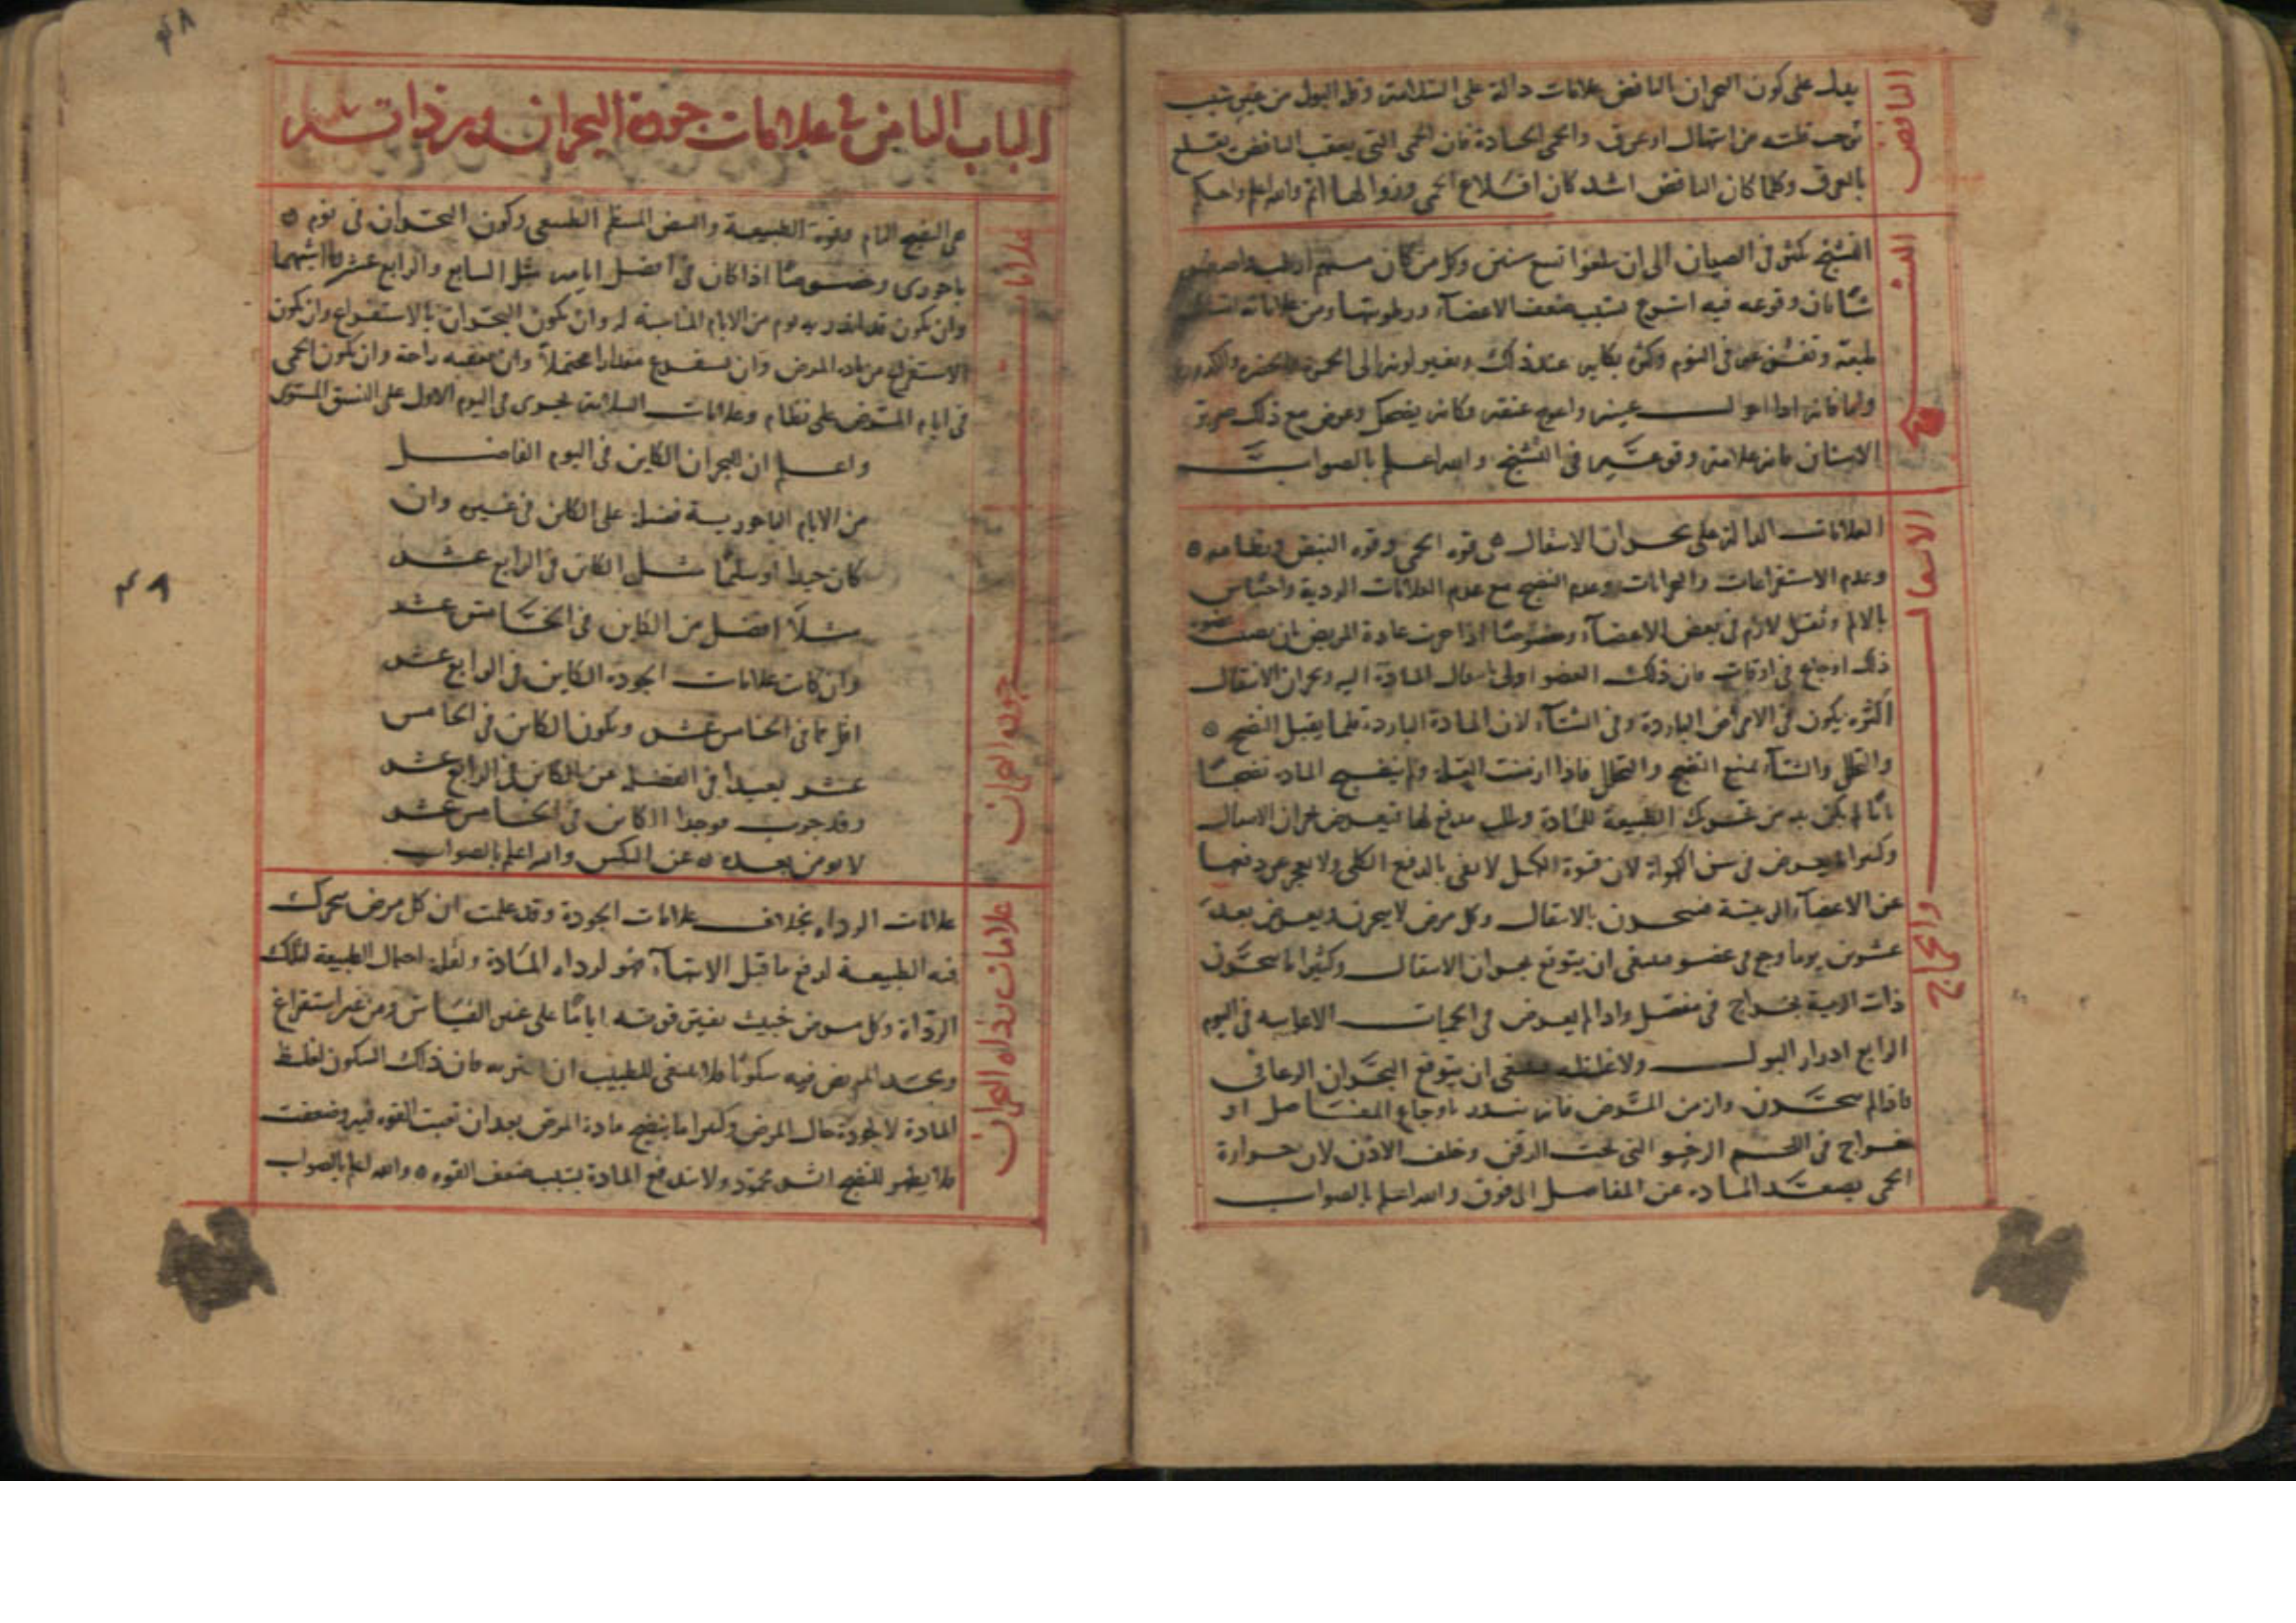 النافض
يدل على كون البحران بالنافض علامات دالة على السلامة وقلة البول من غير سبب
توجب قلته من اسهال او عرق والحمى الحادة فان الحمى التي يعقب النافض يقلع
بالعرق وكلما كان النافض اشد كان اقلاع الحمى وزوالها اتم والله اعلم واحكم
التشنج
التشنج يكثر في الصبيان الى ان يبلغوا تسع سنين وكل من كان منهم ارطب
شانا فان وقوعه فيه اسرع بسبب ضعف الاعضاء ورطوبتها ومن علاماته
طبعه وتفزعه في النوم وكثرة بكايه عند ذلك وتغير لونه الى الحمرة والخضرة والكدورة
واما فانه اذا احولت عينه واعوج عنقه وكانه يضحك وعرض مع ذلك صرير
الاسنان فانه علامة وقوعه في التشنج والله اعلم بالصواب
الانتقال والخراج
العلامات الدالة على بحران الانتقال هي قوة الحمى وقوة النبض ونظامه
وعدم الاستفراغات والبحرانات وعدم النضج مع عدم العلامات الردية واحتباس
بالالم وثقل لازم في بعض الاعضاء وخصوصا اذا جرت عادة المريض بان يصيب عضوه
ذلك اوجاع في اوقات فان ذلك العضو اولى بانتقال المادة اليه وبحران الانتقال
اكثره يكون في الامراض الباردة وفي الشتاء لان المادة الباردة قلما يقبل النضج
والتحلل والشتاء يمنع النضج والتحلل فاذا ولم ينضج المادة نضجا
تاما لم يكن بد من تحريك الطبيعة للمادة وطلب مدفع لها فيعرض بحران الانتقال
وكثيرا ما يعرض في سن الكهولة لان قوة الكهل لا تفي بالدفع الكلي ولا يعجز عن دفعها
عن الاعضاء الرئيسة فيبحرون بالانتقال وكل مرض لا يبحرن ويعرض بعد
عشرين يوما وجع في عضو فينبغي ان يتوقع بحران الانتقال وكثيرا ما يبحرن
ذات الرية بخراج في مفصل واذا لم يعرض في الحميات الاعيايية في اليوم
الرابع ادرار البول ولا غلظه فينبغي ان يتوقع البحران الرعافي
فاذا لم يبحرن وازمن المرض فانه ينذر باوجاع المفاصل او
خراج في اللحم الرخو التي تحت الرقبة وخلف الاذن لان حرارة
الحمى يصعد المادة عن المفاصل الى فوق والله اعلم بالصواب
٤٨
الباب الثامن في علامات جودة البحران ورداءته
علامات جودة البحران
هي النضج التام وقوة الطبيعة والنبض المنتظم الطبيعي وكون البحران في يوم
باحوري وخصوصا اذا كان في افضل ايامه مثل السابع والرابع عشر وما اشبهها
وان يكون قد انذر به يوم من الايام المناسبة له وان يكون البحران بالاستفراغ وان يكون
الاستفراغ من مادة المرض وان يستفرغ مقدارا محتملا وان تعقبه راحة وان يكون الحمى
في ايام المرض على نظام وعلامات السلامة يجري في اليوم الاول على النسق المستوي
واعلم ان البحران الكاين في اليوم الفاضل
من الايام الباحورية فضل على الكاين في غيره وان
كان جيدا او سليما مثل الكاين في الرابع عشر
مثلا افضل من الكاين في الخامس عشر
وان كانت علامات الجودة الكاين في الرابع عشر
اقل مما في الخامس عشر ويكون الكاين في الخامس
عشر بعيدا في الفضل عن الكاين في الرابع عشر
وقد جرب فوجد الكاين في الخامس عشر
لا يومن بعده عن النكس والله اعلم بالصواب
٤٨
علامات رداءة البحران
علامات الرداءة بخلاف علامات الجودة وقد علمت ان كل مرض يتحرك
فيه الطبيعة لدفع ما قبل الانتهاء فهو لرداءة المادة ولقلة احتمال الطبيعة لتلك
الرداءة وكل مرض خبيث قوته اياما على غير القياس ومن غير استفراغ
ويجد المريض فيه سكونا فلا ينبغي للطبيب ان يغتر به فان ذلك السكون لغلظ
المادة لا لجودة حال المرض وكثيرا ما ينضج مادة المرض بعد ان تعبت القوة فيه وضعفت
فلا يظهر للنضج اثر محمود ولا يندفع المادة بسبب ضعف القوة والله اعلم بالصواب